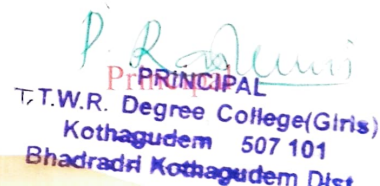 Principal
PRINCIPAL
T.T.W.R. Degree College(Girls)
Kothagudem 507 101
Bhadradri Kothagudem Dist